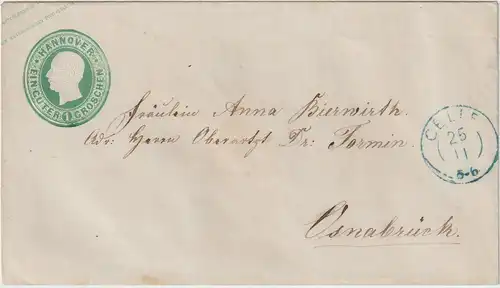 HANNOVER
EIN GUTER 1 GROSCHEN
Fräulein Anna Bierwirth.
Adr: Herrn Oberartzt Dr: Tormin.
Osnabrück.
CELLE
25
11
5-6